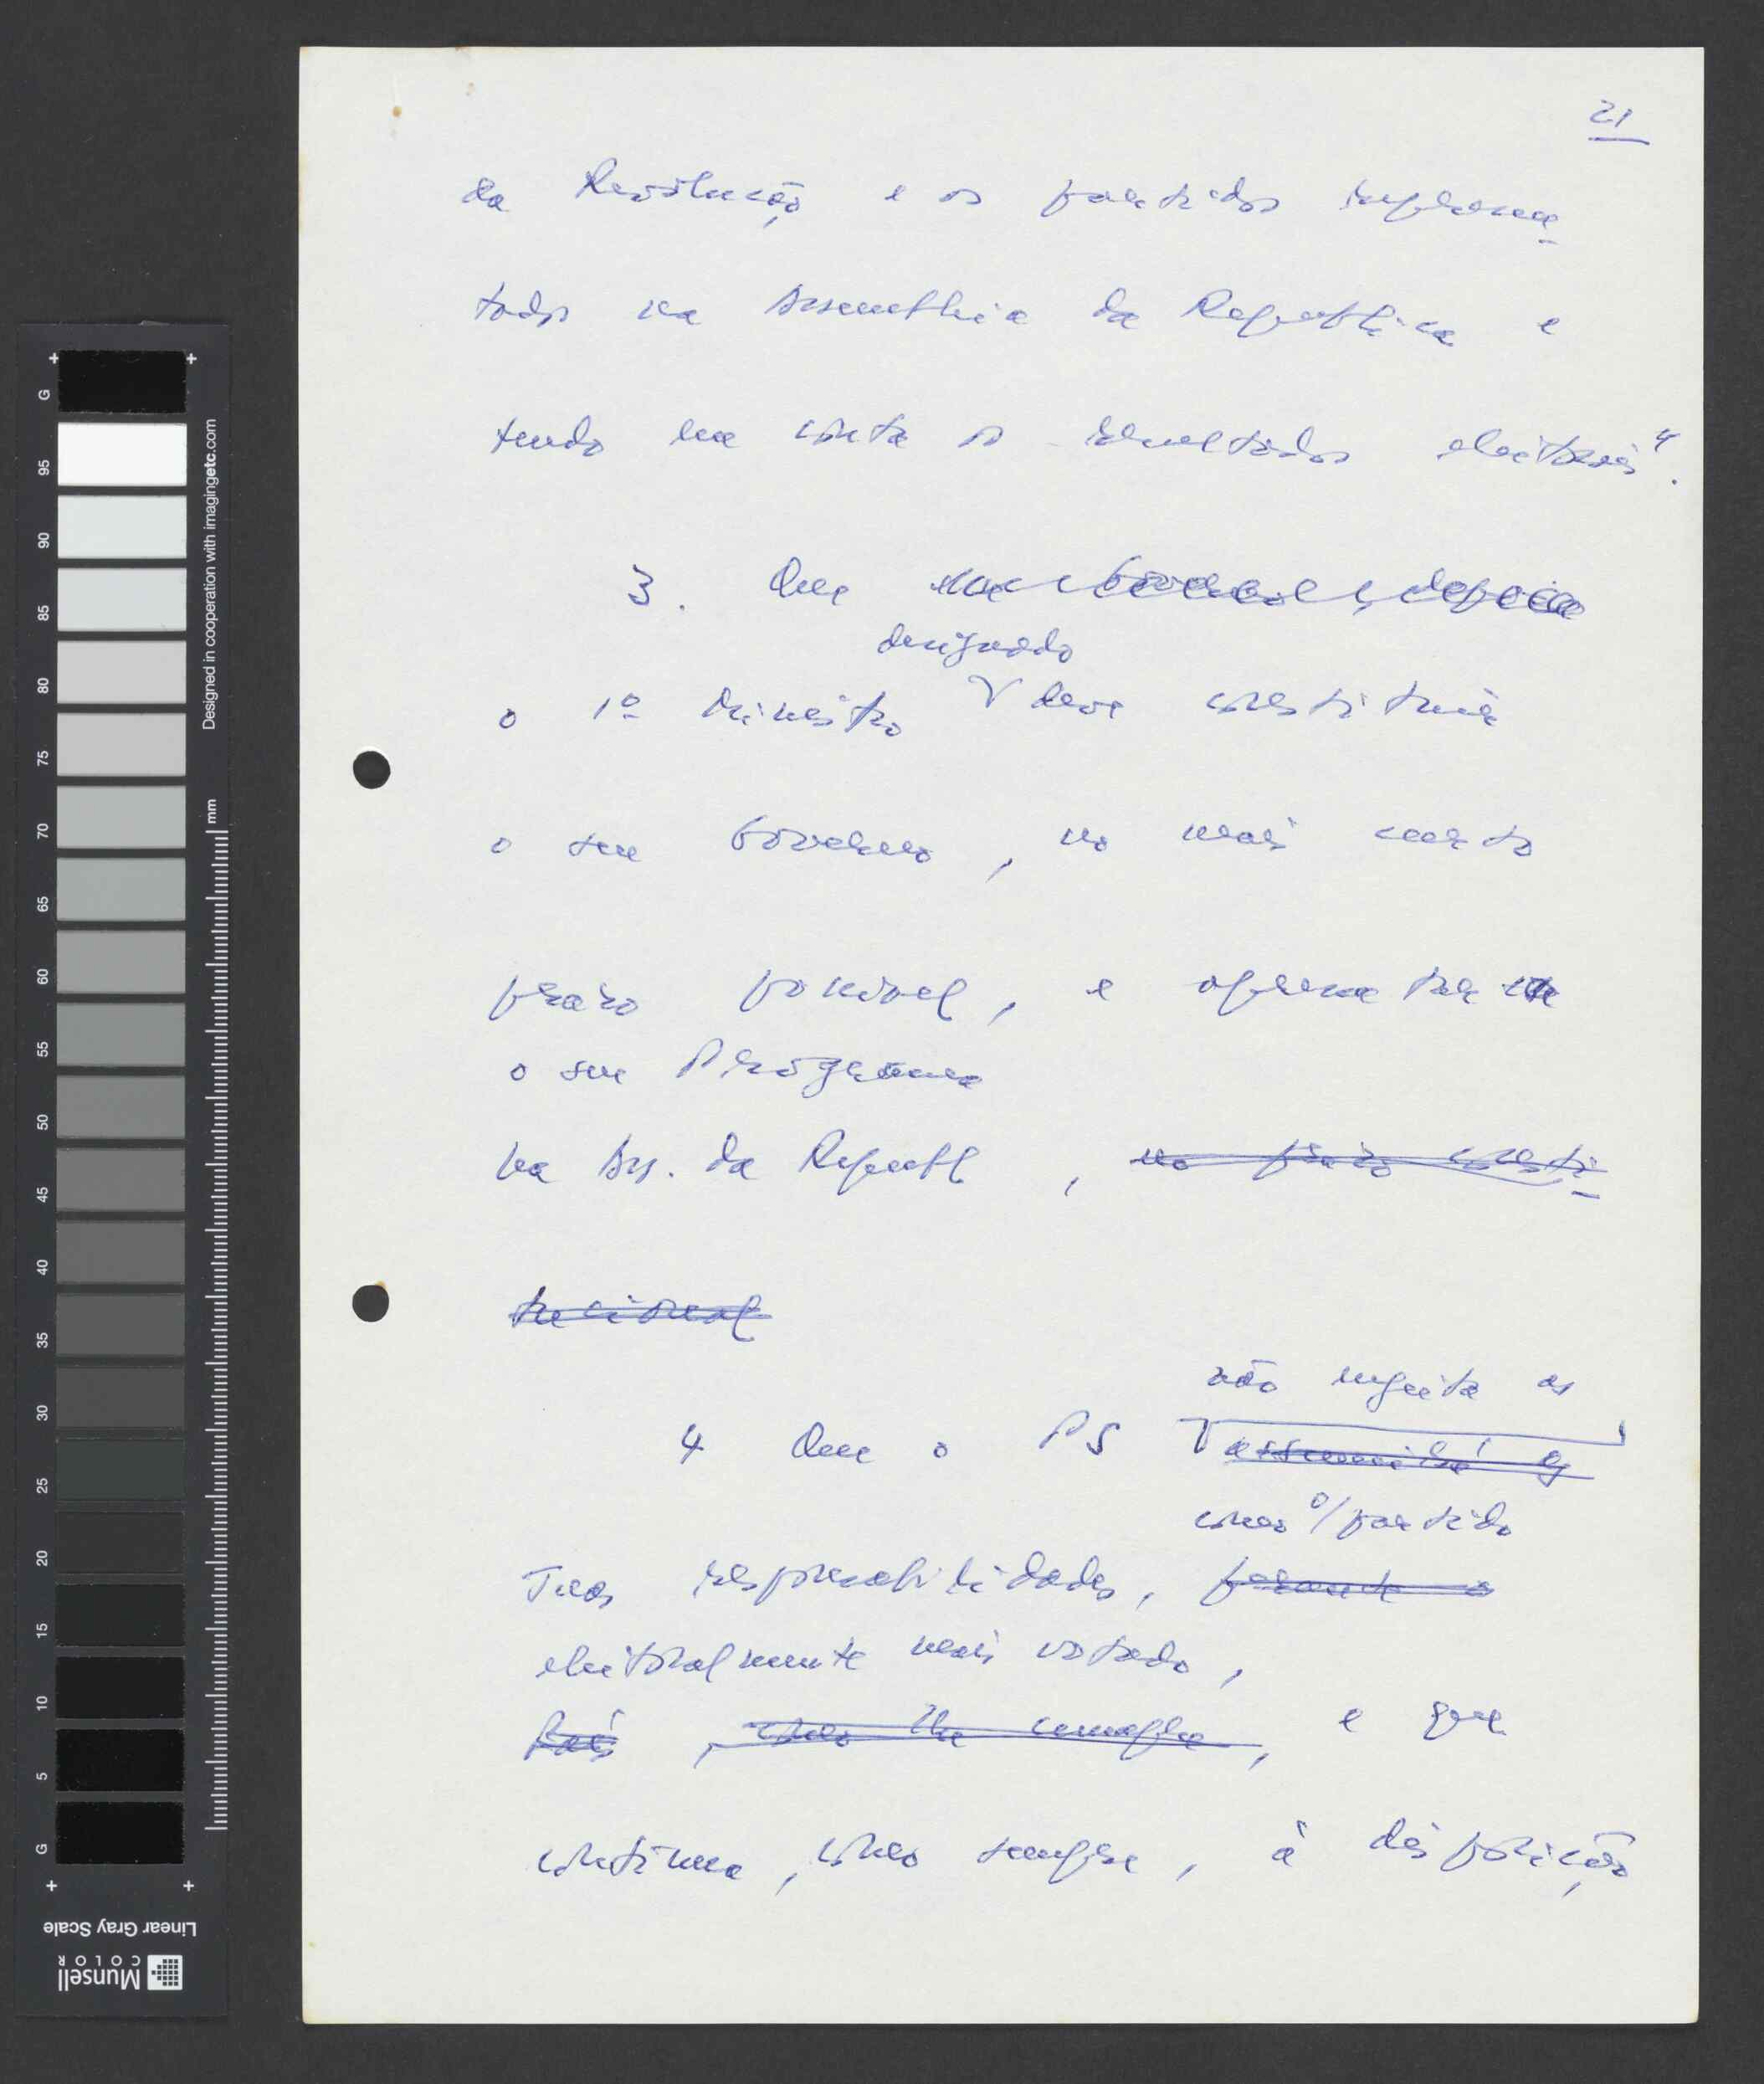 21
da Revolução e os partidos represen-
tados na Assembleia da Republica e
tendo em conta os resultados eleitorais".
3. Que
designado
o 1º Ministro deve constituir
o seu Governo, no mais curto
prazo possivel, e apresentar
o seu Programa
na Ass. da Republ , no prazo consti-
tucional
não rejeita as
4 Que o PS assumirá as
como o/partido
suas responsabilidades, perante o
eleitoralmente mais votado,
País , como lhe cumpre, e que
continua, como sempre, à disposição
G
95
90
85
80
75
70
65
60
55
50
45
40
35
30
25
20
15
10
5
G
Designed in cooperation with imagingetc.com
mm
Linear Gray Scale
Munsell
COLOR